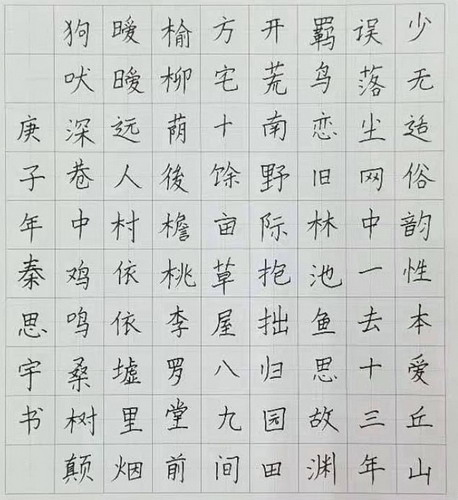 少无适俗韵性本爱丘山
误落尘网中一去十三年
羁鸟恋旧林池鱼思故渊
开荒南野际抱拙归园田
方宅十馀亩草屋八九间
榆柳荫後檐桃李罗堂前
暧暧远人村依依墟里烟
狗吠深巷中鸡鸣桑树颠
庚子年秦思宇书